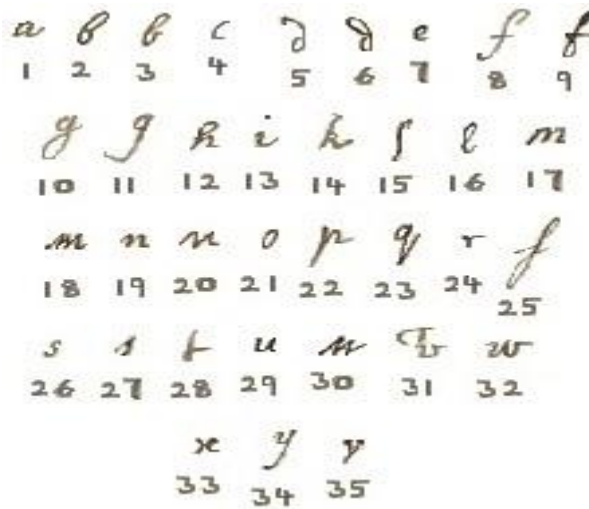 a b b c d d e f f
1 2 3 4 5 6 7 8 9
g g h i k l l m
10 11 12 13 14 15 16 17
m n n o p q r f
18 19 20 21 22 23 24 25
s s t u u v w
26 27 28 29 30 31 32
x y y
33 34 35